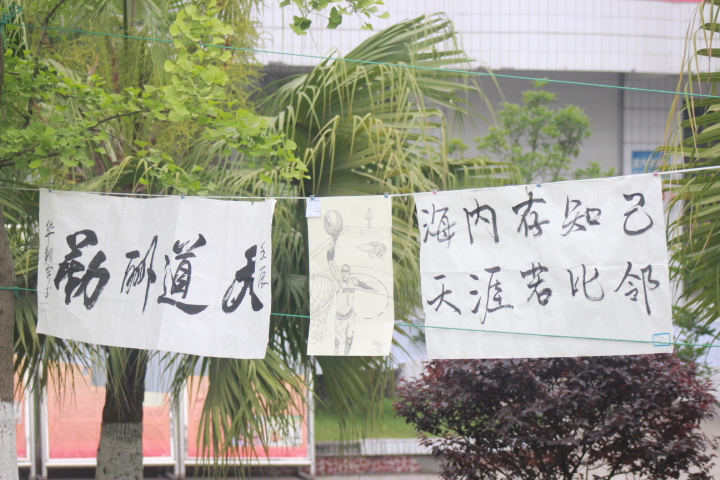 天道酬勤
海内存知己
天涯若比邻